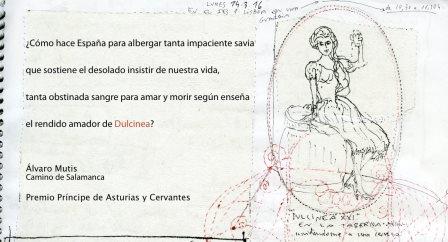 LUNES 14.3.16
¿Cómo hace España para albergar tanta impaciente savia
que sostiene el desolado insistir de nuestra vida,
tanta obstinada sangre para amar y morir según enseña
el rendido amador de Dulcinea?
Álvaro Mutis
Camino de Salamanca
Premio Príncipe de Asturias y Cervantes
DULCINEA XXI
EN LA TABERNA
invitándome a una cerveza